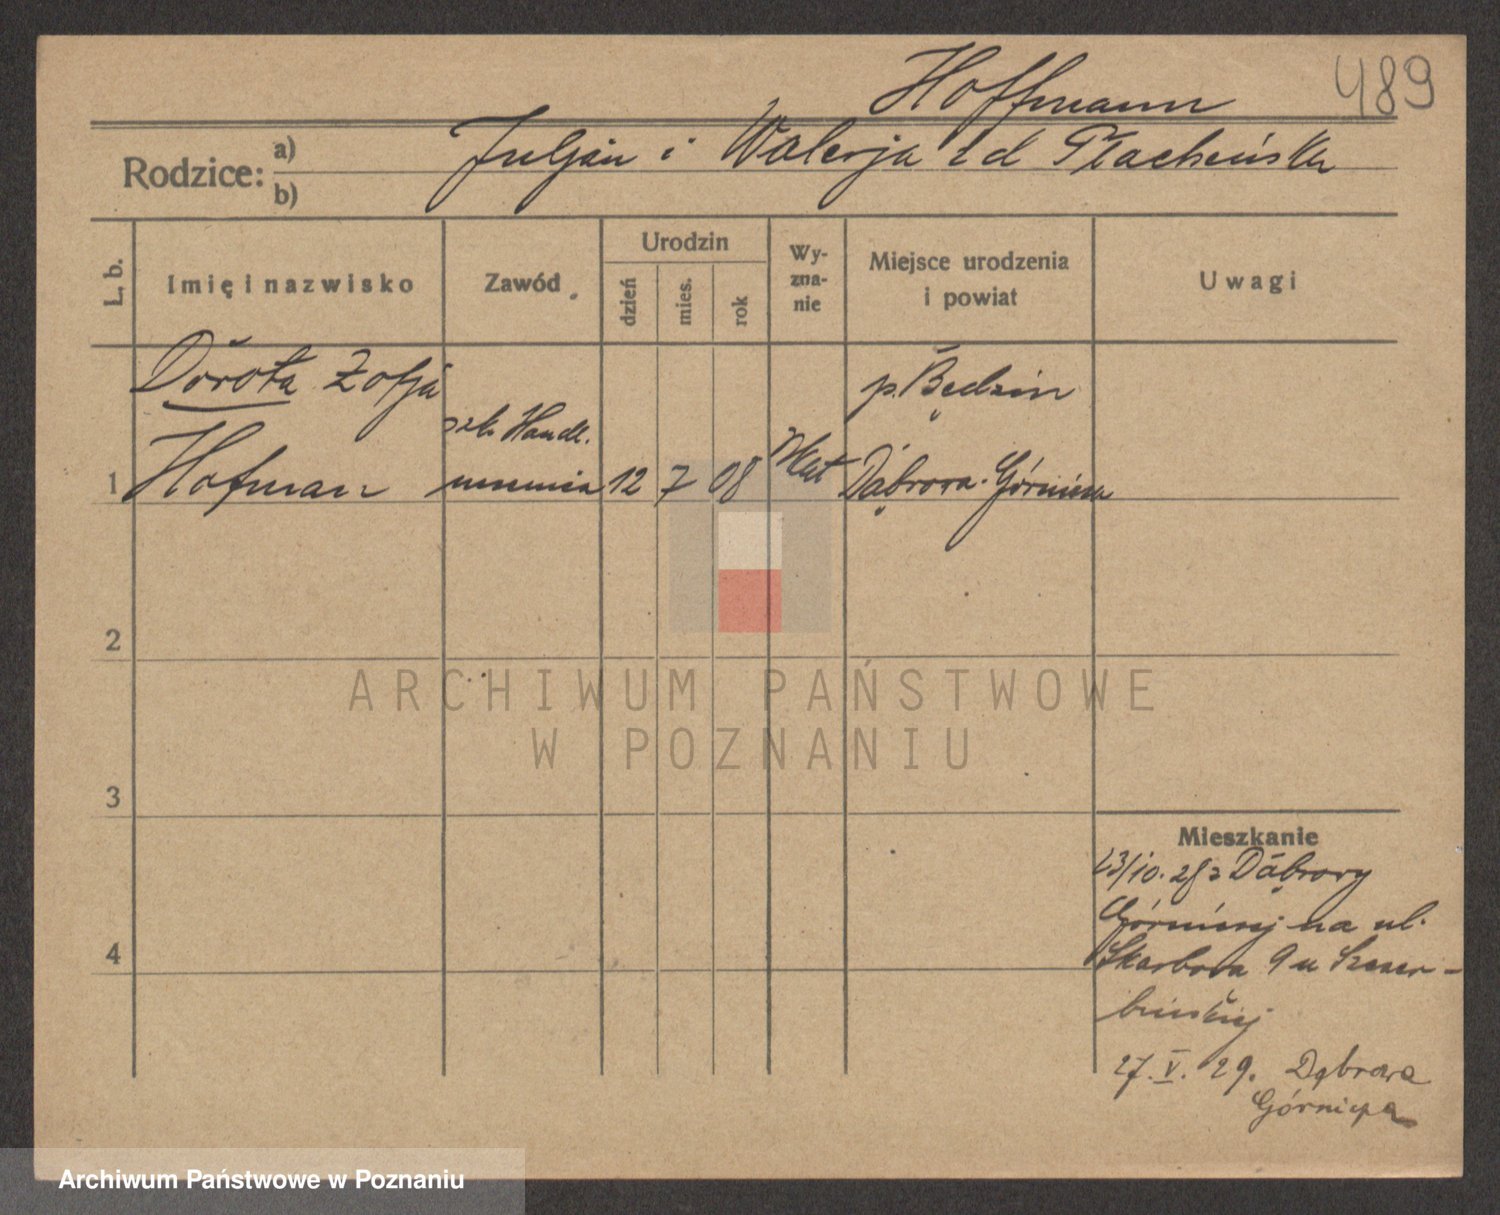 Hoffmann 489
Rodzice: a) b) Juljan i Walerja z d
L. b. Imię i nazwisko Zawód Urodzin dzień mies. rok Wyznanie Miejsce urodzenia i powiat Uwagi
Dorota Zofja p. Będzin
szk. Handl.
1 Hofman uczennica 12 7 08 Kat Dąbrowa Górnicza
2
ARCHIWUM PAŃSTWOWE
W POZNANIU
3
Mieszkanie
23/10. 28 z Dąbrowy
Górniczej na ul.
4 Skarbowa 9 u Szczer-
bińskiej
27. V. 29. Dąbrowa
Górnicza
Archiwum Państwowe w Poznaniu